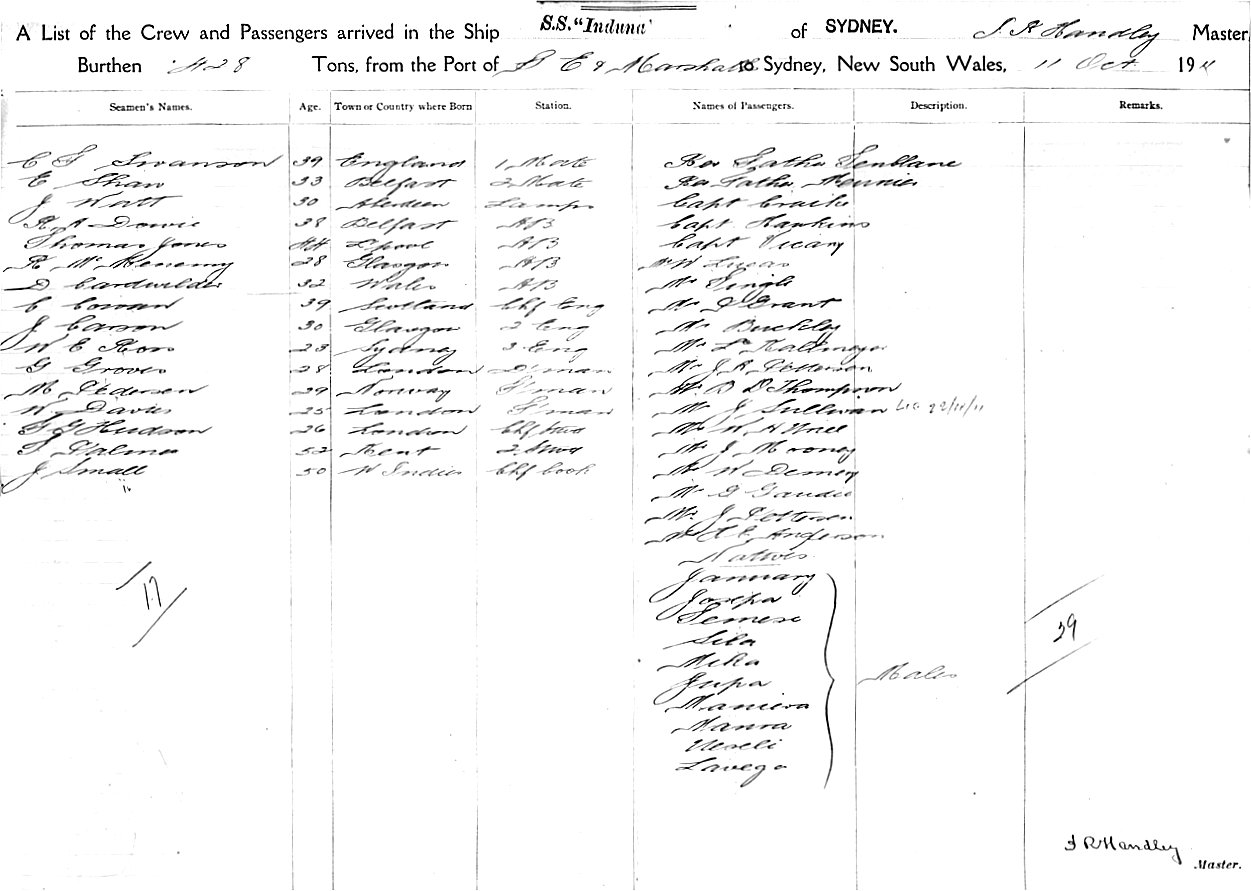 S.S. "Induna"
A List of the Crew and Passengers arrived in the Ship of SYDNEY. Handley Master
Burthen 428 Tons, from the Port of G E & Marshalls to Sydney, New South Wales, 11 Oct 1911
Seamen's Names. Age. Town or Country where Born Station. Names of Passengers. Description. Remarks.
Swanson 39 England 1 Mate Rev Father
E Shaw 33 Belfast 2 Mate Rev Father Meunier
J Watt 30 Aberdeen Lamps Capt
R A Dowie 38 Belfast AB Capt Hankins
Thomas Jones 44 L'pool AB Capt Vicary
R 28 Glasgow AB W Lucas
D 32 Wales AB Mr Singh
C Cowan 39 Scotland Chf Eng Mr Grant
J Carson 30 Glasgow 2 Eng Mr Buckley
W E Ross 23 Sydney 3 Eng Mr
G Groves 28 London D'man Mr J R Petterson
M Pedersen 29 Norway F'man Mr B D Thompson
W Davies 25 London F'man Mr J Sullivan
Hudson 26 London Chf Stwd Mr W H
Palmer 52 Kent 2 Stwd Mr J Mooney
J Small 50 W Indies Chf Cook Mr W
16 Mr G Gaudie
Mr J Pettersen
Mr Anderson
Natives
January
Josepa
Semese
Sila
Mika
Jupa
17 39
Males
Manieva
Manoa
Ueseli
Lavega
F R Handley
Master.